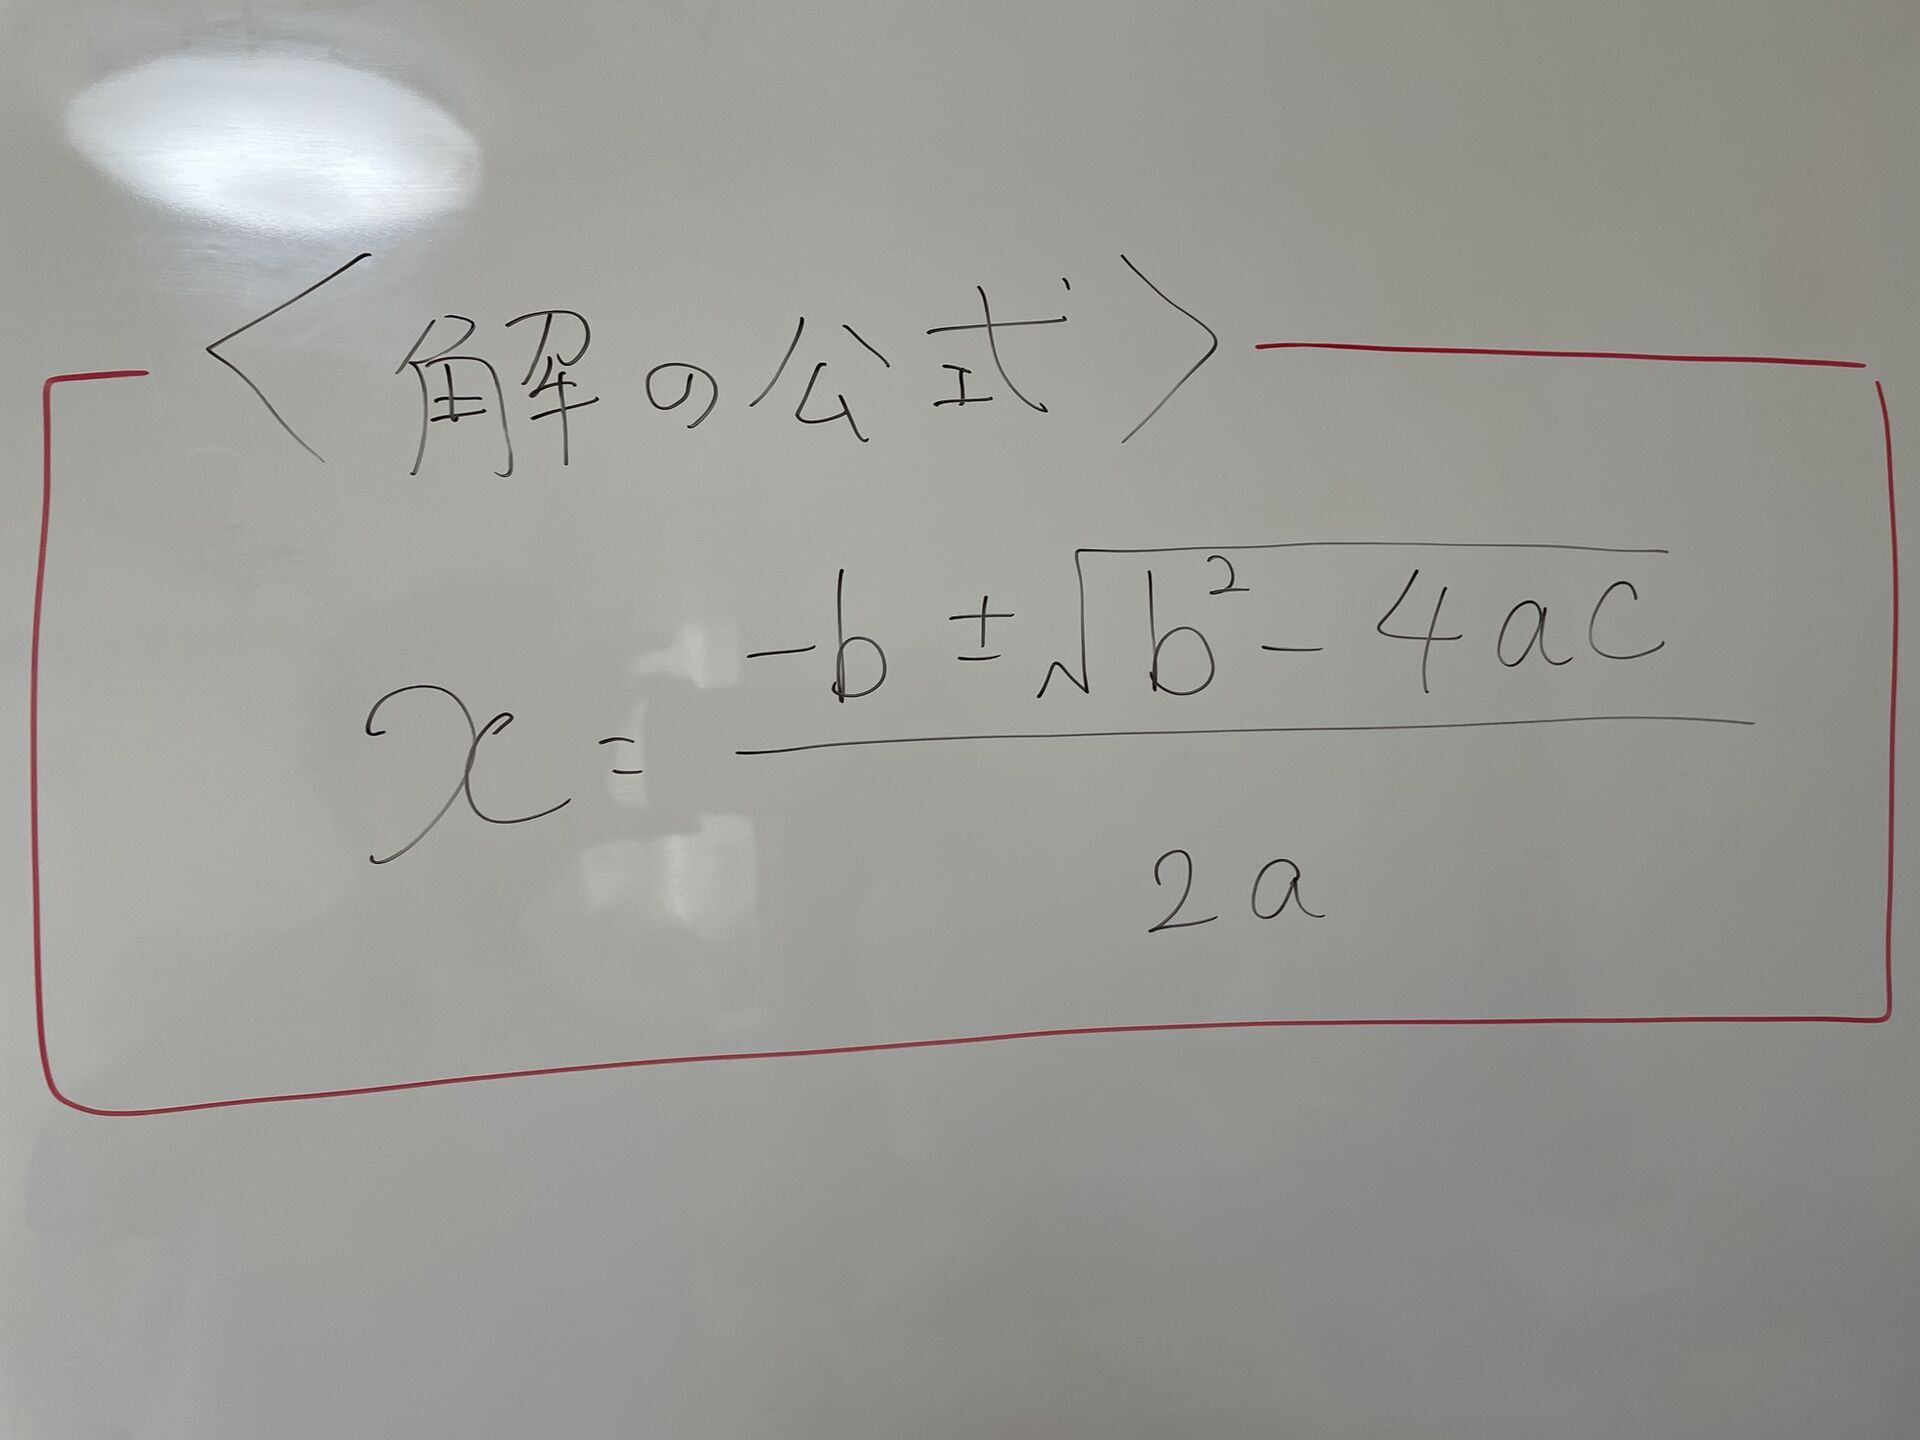 <解の公式>
x = (-b ± √(b² - 4ac)) / 2a